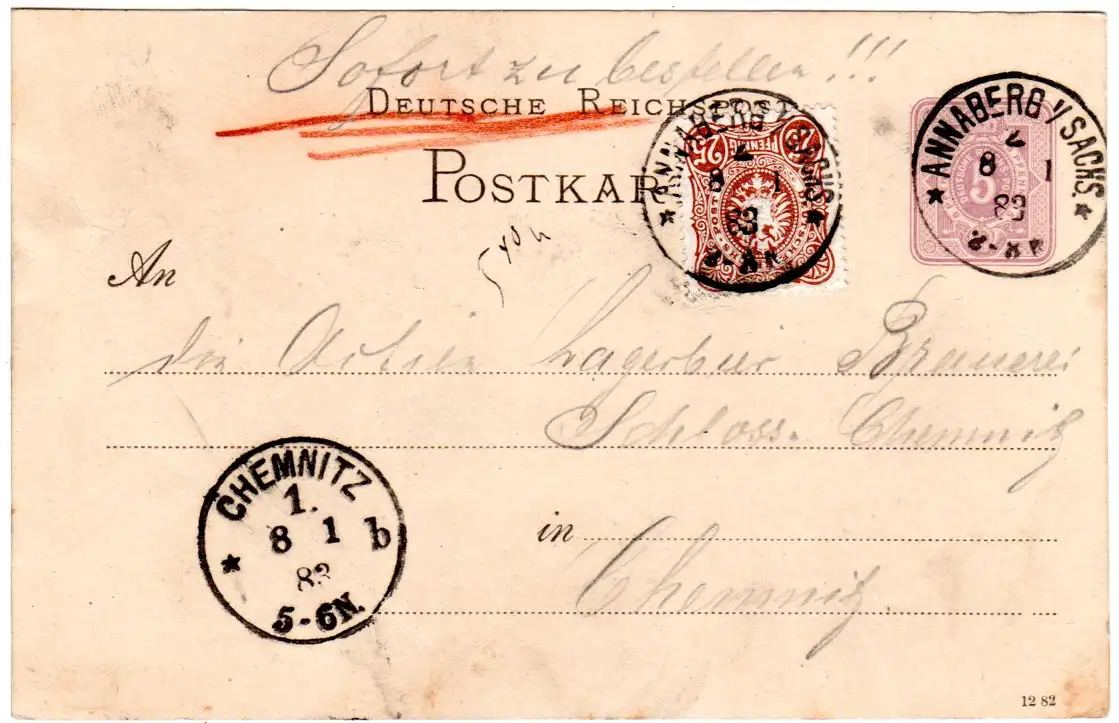 Sofort zu bestellen!!!
DEUTSCHE REICHSPOST
POSTKAR
ANNABERG I/SACHS.
8 1
83
25 PFENNIG 25
ANNABERG I/SACHS.
8 1
83
5
An
die Actien Lagerbier Brauerei
Schloss-Chemnitz
CHEMNITZ
1.
8 1 b
83
5-6N.
in
Chemnitz
12 82